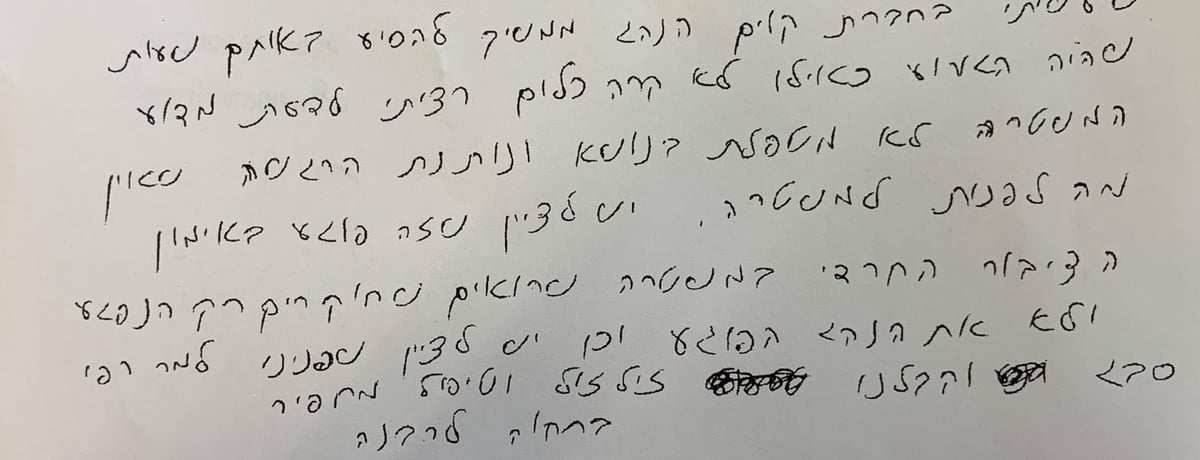 בחברת קוים הנהג ממשיך להסיע באותם שעות
שהיה הגעוע כאילו לא קרה כלום רציתי לדעת מדוע
המשטרה לא מטפלת בנושא ונותנת הרגשה שאין
מה לפנות למשטרה. יש לציין שזה פוגע באימון
הציבור החרדי במשטרה שרואים שחוקרים רק הנפגע
ולא את הנהג הפוגע וכן יש לציין שפנינו למר רפי
סבג וקבלנו זילזול וטיפול מחפיר
בתקוה להבנה